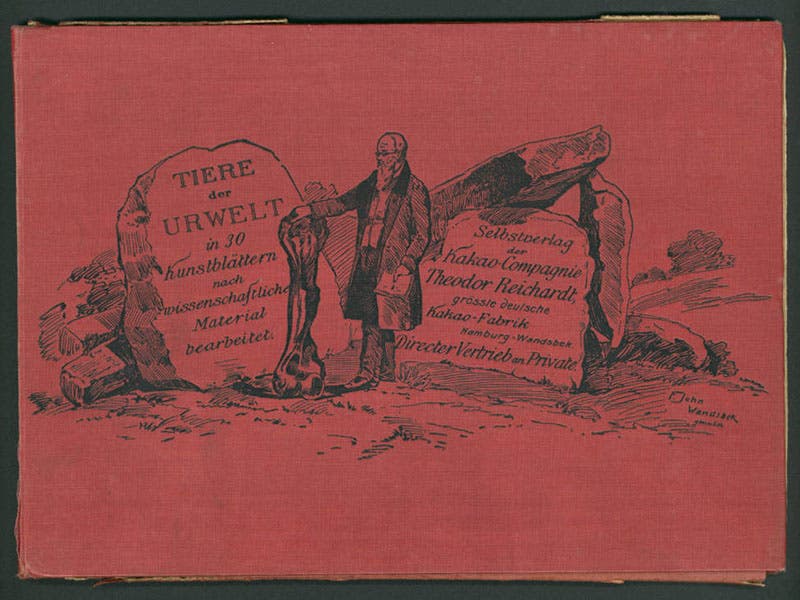 TIERE
der
URWELT
in 30
Kunstblättern
nach
wissenschaftliche
Material
bearbeitet.
Selbstverlag
der
Kakao-Compagnie
Theodor Reichardt,
grösste deutsche
Kakao-Fabrik
Hamburg-Wandsbek
Directer Vertrieb an Private
F. John
Wandsbek